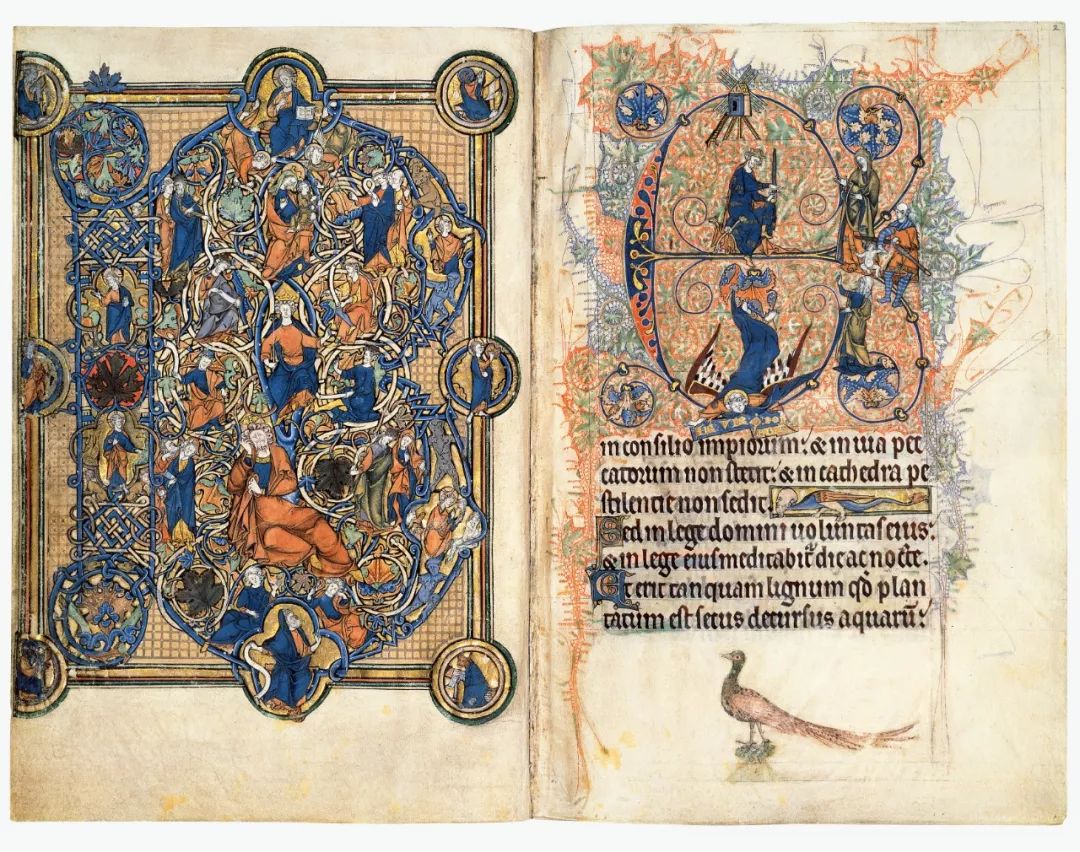 2
in consilio impiorum: & in uia pec
catorum non stetit: & in cathedra pe
stilentie non sedit.
Sed in lege domini uoluntas eius:
& in lege eius meditabit᷑ die ac nocte.
Et erit tanquam lignum qd̓ plan
tatum est secus decursus aquarū: